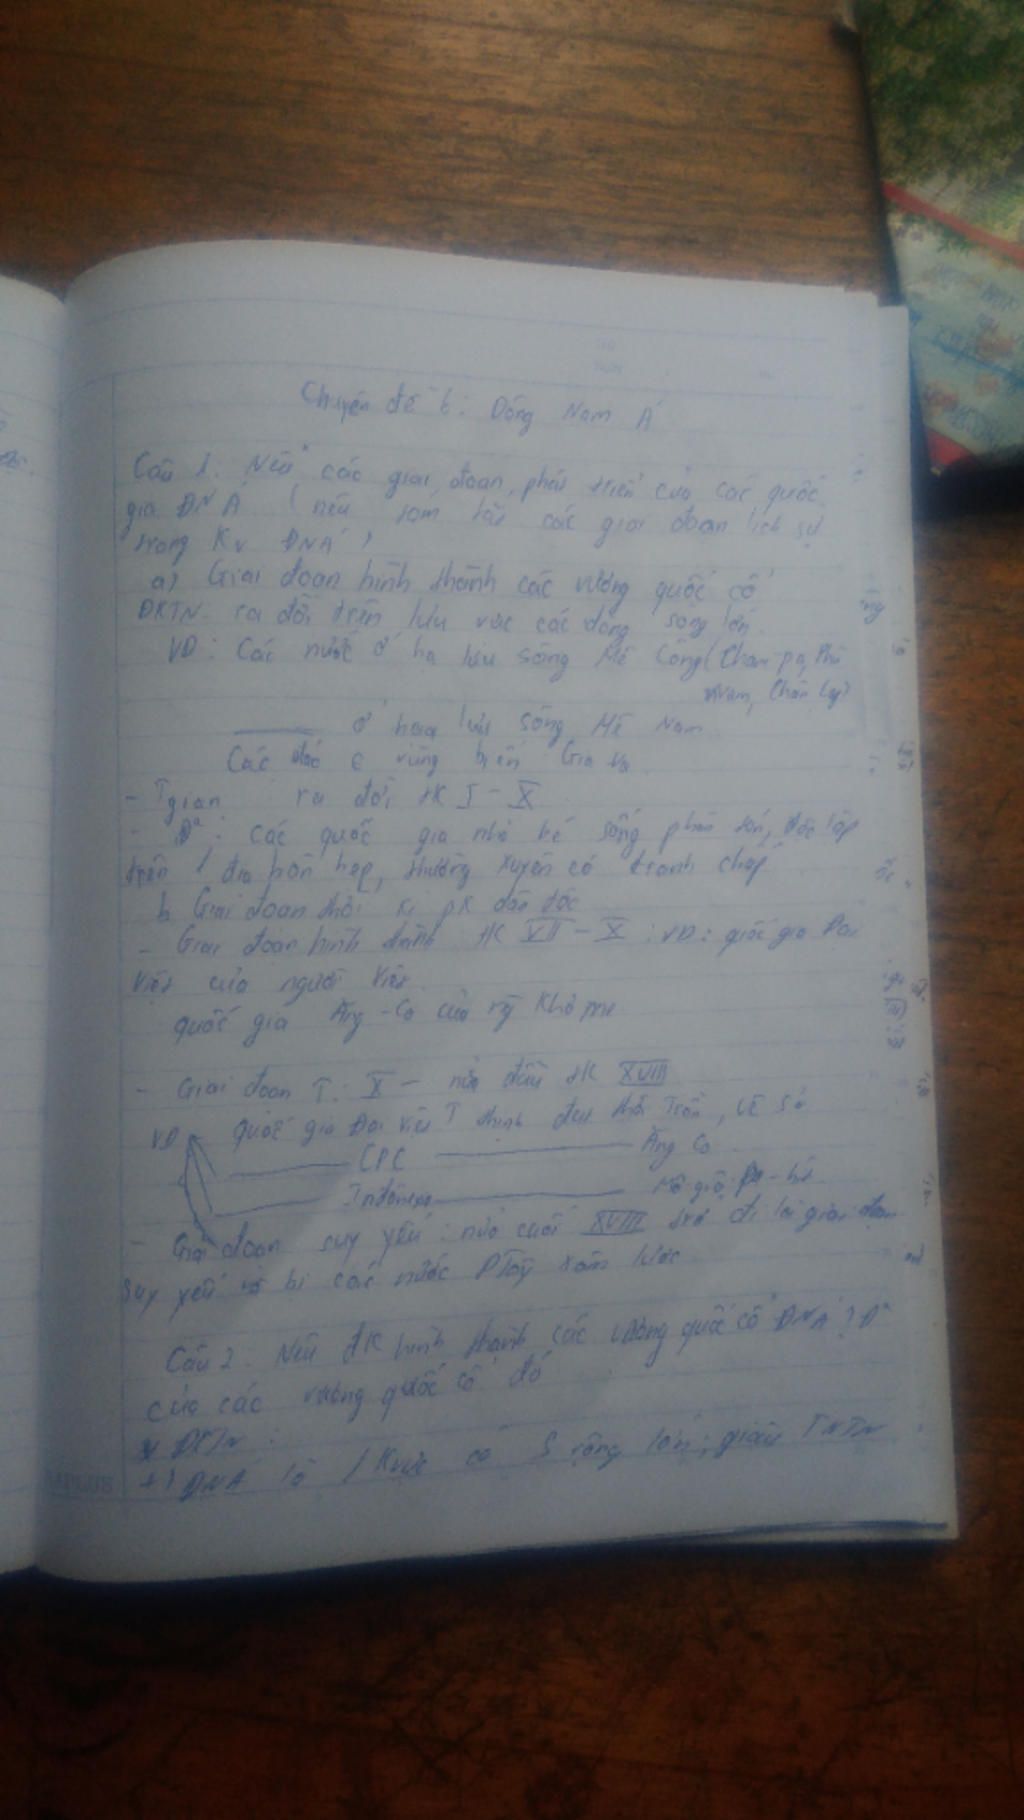 Chuyên đề 6: Đông Nam Á
Câu 1. Nêu các giai đoạn phát triển của các quốc
gia ĐNÁ (nêu tóm tắt các giai đoạn lịch sử
trong KV ĐNÁ)
a) Giai đoạn hình thành các vương quốc cổ
ĐKTN: ra đời trên lưu vực các dòng sông lớn.
VD: Các nước ở hạ lưu sông Mê Công (Cham-pa, Phù
Nam, Chân Lạp)
ở hạ lưu sông Mê Nam
Các vùng biển Gia Va
- Tgian ra đời tK I - X
- Đ²: các quốc gia nhỏ bé sống phân tán, độc lập
trên 1 địa bàn hẹp, thường xuyên có tranh chấp
b Giai đoạn thời kì pK dân tộc
- Giai đoạn hình thành tK VII - X: VD: quốc gia Đại
Việt của người Việt
quốc gia Ăng-Co của ng Khơ me
- Giai đoạn T: X - nửa đầu tK XVIII
VD quốc gia Đại Việt T thịnh đạt thời Trần, Lê Sơ
CPC Ăng Co
Indônexia Mô-giô-pa-hit
- Giai đoạn suy yếu: nửa cuối XVIII trở đi là giai đoạn
suy yếu và bị các nước PTây xâm lược
Câu 2: Nêu ĐK hình thành các vương quốc cổ ĐNÁ? Đ²
của các vương quốc cổ đó
* ĐKTN:
+) ĐNÁ là 1 Kvực có S rộng lớn, giàu TNTN